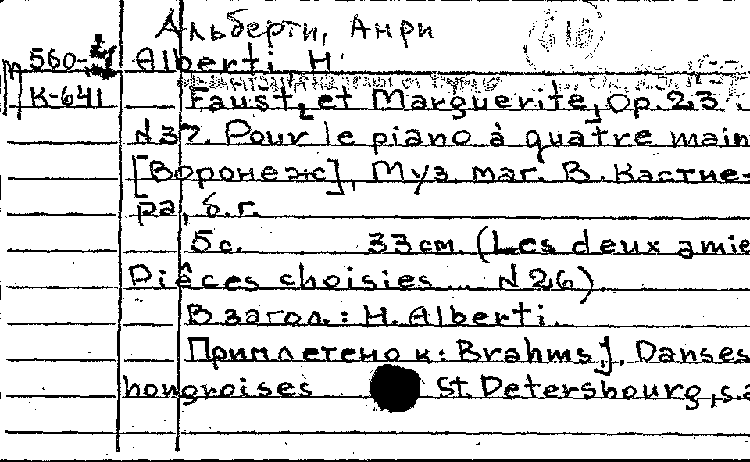 Альберти, Анри
560-
Alberti H.
К-641
Faust et Marguerite, Op. 23.
N37. Pour le piano à quatre main
[Воронеж], Муз. маг. В. Кастне-
ра, б.г.
5с. 33см. (Les deux amie
Pièces choisies ... N26)
В загол.: H. Alberti.
Приплетено к: Brahms J. Danses
hongroises St. Petersbourg, s.a